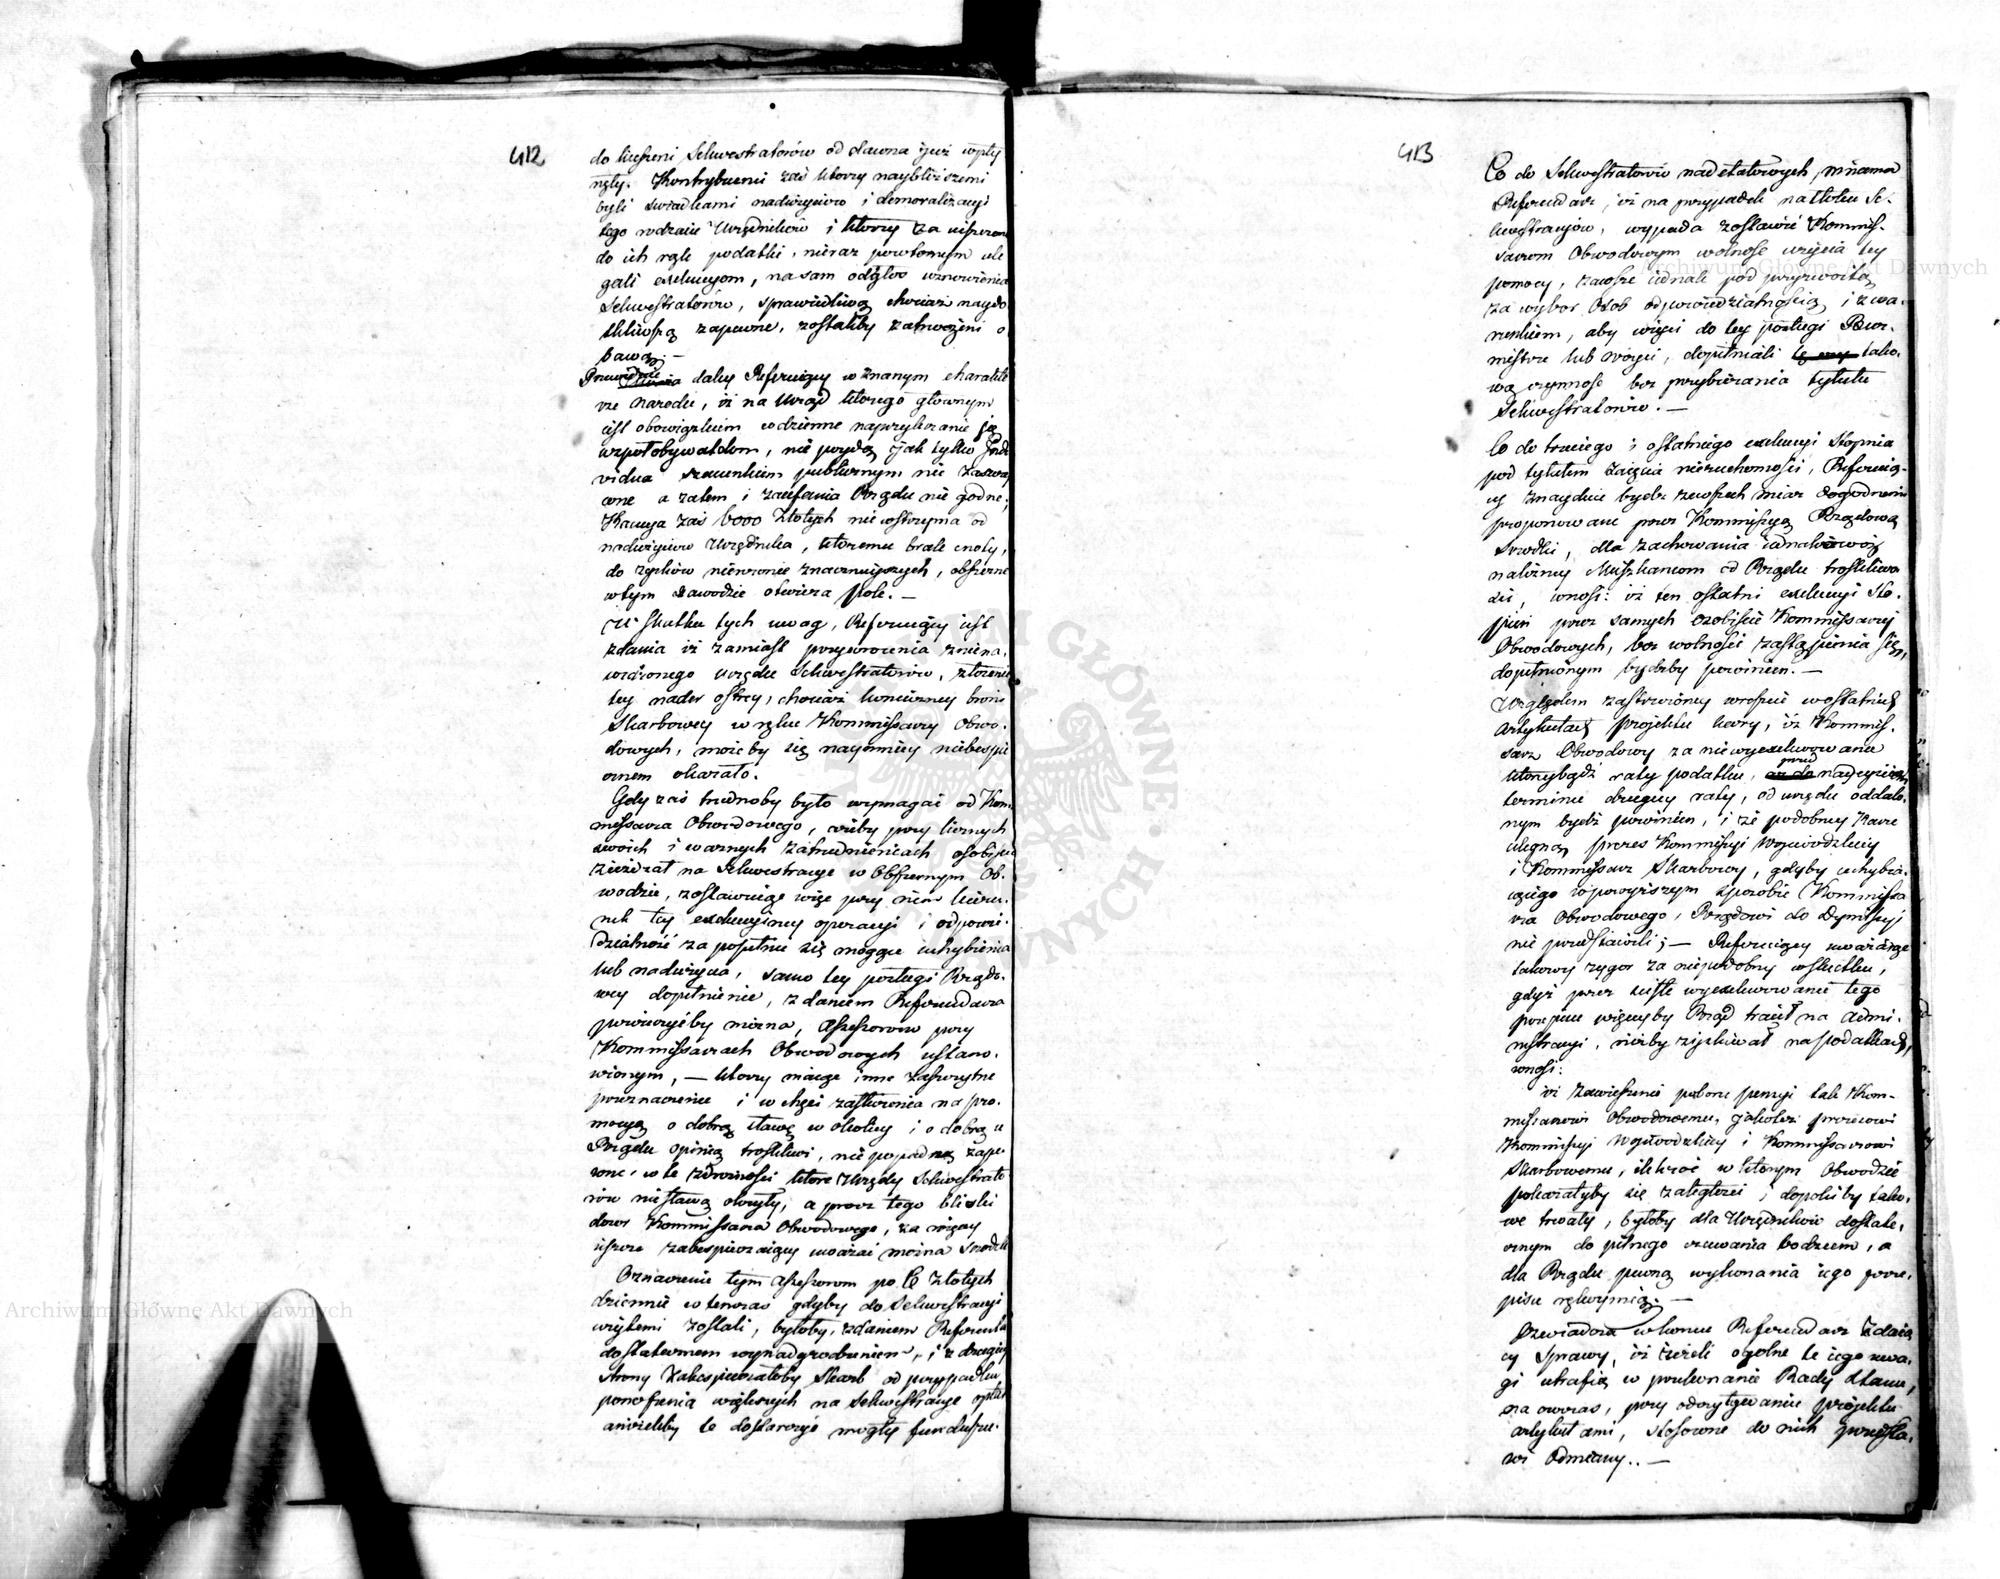 412
do kieszeni Sekwestratorów od dawna już wpły
nęły. Kontrybuenci zaś którzy naybliższemi
byli świadkami nadużyciow i demoralizacyi
tego rodzaiu Urzędników i którzy za
do ich rąk podatki, nieraz powtornym ule
gali exekucyom, na sam odgłos wznowienia
Sekwestratorów, sprawiedliwą chociaż naydo
tkliwszą zapewne, zostaliby zatrwożeni o
bawą. —
Przewiduie daley Referuiący w znanym charakte
rze Narodu, iż na Urząd którego głównym
iest obowiązkiem codzienne naprzykrzanie się
wspołobywatelom, nie przydą iak tylko Indi
vidua szacunkiem publicznym nie zaszczy
cone a zatem i zaufania Rządu nie godne;
Kaucya zaś 6000 Złotych nie wstrzyma od
nadużyciow Urzędnika, któremu brak cnoty,
do zysków nierownie znacznieyszych, obszerne
w tym zawodzie otwiera pole. —
W skutku tych uwag, Referuiący iest
zdania iż zamiast przywrocenia zniena,
widzonego urzędu Sekwestratorów, złożenie
tey nader ostrey, chociaż konieczney broni
Skarbowey w ręku Kommissarzy Obwo,
dowych, możeby się naymniey niebespie
cznem okazało.
Gdy zaś trudnoby było wymagać od Kom
missarza Obwodowego, ażeby przy licznych
swoich i ważnych zatrudnieniach osobiście
zieżdżał na Sekwestracye w Obszernym Ob,
wodzie, zostawuiąc więc przy nim kieru,
nek tey exekucyiney operacyi i odpowie,
dzialność za popełnić się mogące uchybienia
lub nadużycia, samo tey posługi Rządo,
wey dopełnienie, zdaniem Referendarza
powierzyćby można, Assessorom przy
Kommissarzach Obwodowych ustano,
wionym, — którzy maiąc inne zaszczytne
przeznaczenie i w chęci zasłużenia na pro,
mocyą o dobrą sławę w okolicy i o dobrą u
Rządu opinią troskliwi, nie popadną zape
wne w te zdrożności które Urzędy Sekwestrato
rów niesławą okryły; a przez tego bliski
dozor Kommissarza Obwodowego, za
zabespieczaiący uważać można środek
Oznaczenie tym Assessorom po 6 Złotych
dziennie w tenczas gdyby do Sekwestracyi
użytemi zostali, byłoby, zdaniem Referenta
dostatecznem wynadgrodzeniem, i z drugiey
strony zabespieczałoby Skarb od przypadku
ponoszenia większych na Sekwestracye opłat
aniżeliby te dostarczyć mogły fundusze.
413
Co do Sekwestratorów nadetatowych, mniema
Referendarz, iż na przypadek natłoku Se,
kwestracyów, wypada zostawić Kommis,
sarzom Obwodowym wolność użycia tey
pomocy, zawsze iednak pod przyzwoitą
za wybor Osob odpowiedzialnością i z wa,
runkiem, aby wzięci do tey posługi Bur,
mistrze lub woyci, dopełniali tako,
wą czynność bez przybierania tytułu
Sekwestratorów. —
Co do trzeciego i ostatniego exekucyi stopnia
pod tytułem zaięcia nieruchomości, Referuią,
cy znayduie bydź zewszech miar dogodnemi
proponowane przez Kommissyą Rządową
środki, dla zachowania iednakowoż
należney Mieszkancom od Rządu troskliwo
ści, wnosi: iż ten ostatni exekucyi sto,
pień przez samych osobiście Kommissarzy
Obwodowych, bez wolności zastąpienia się,
dopełnionym bydzby powinien. —
Względem zastrzeżoney wreszcie w ostatnich
Artykułach projektu kary, iż Kommis,
sarz Obwodowy za niewyexekwowanie
któreybądź raty podatku, przed nadeyściem
terminu drugiey raty, od urzędu oddalo,
nym bydź powinien, i że podobney karze
ulegną Prezes Kommissyi Woiewodzkiey
i Kommissarz Skarbowy, gdyby uchybia,
iącego w powyższym sposobie Kommissa
rza Obwodowego, Rządowi do Dymissyi
nie przedstawili; — Referuiący uważaiąc
takowy rygor za niepodobny w skutku,
gdyż przez ścisłe wyexekwowanie tego
przepisu więceyby Rząd tracił na admi,
nistracyi, niżby zyskiwał na podatkach,
wnosi:
iż zawieszenie poboru pensyi tak Kom-
missarzowi Obwodowemu, iakoteż Prezesowi
Kommissyi Woiewodzkiey i Kommissarzowi
Skarbowemu, ilekroć w którym Obwodzie
pokazałyby się zaległości i dopokiby tako,
we trwały, byłoby dla Urzędników dostate,
cznym do pilnego czuwania bodzcem, a
dla Rządu pewną wykonania iego prze,
pisu rękoymią. —
Oświadcza w koncu Referendarz zdaią
cy Sprawę, iż ieżeli ogolne te iego uwa,
gi utrafią w przekonanie Rady Stanu,
na owczas, przy odczytywaniu projektu
artykułami, stosowne do nich przedsta,
wi Odmiany. . —